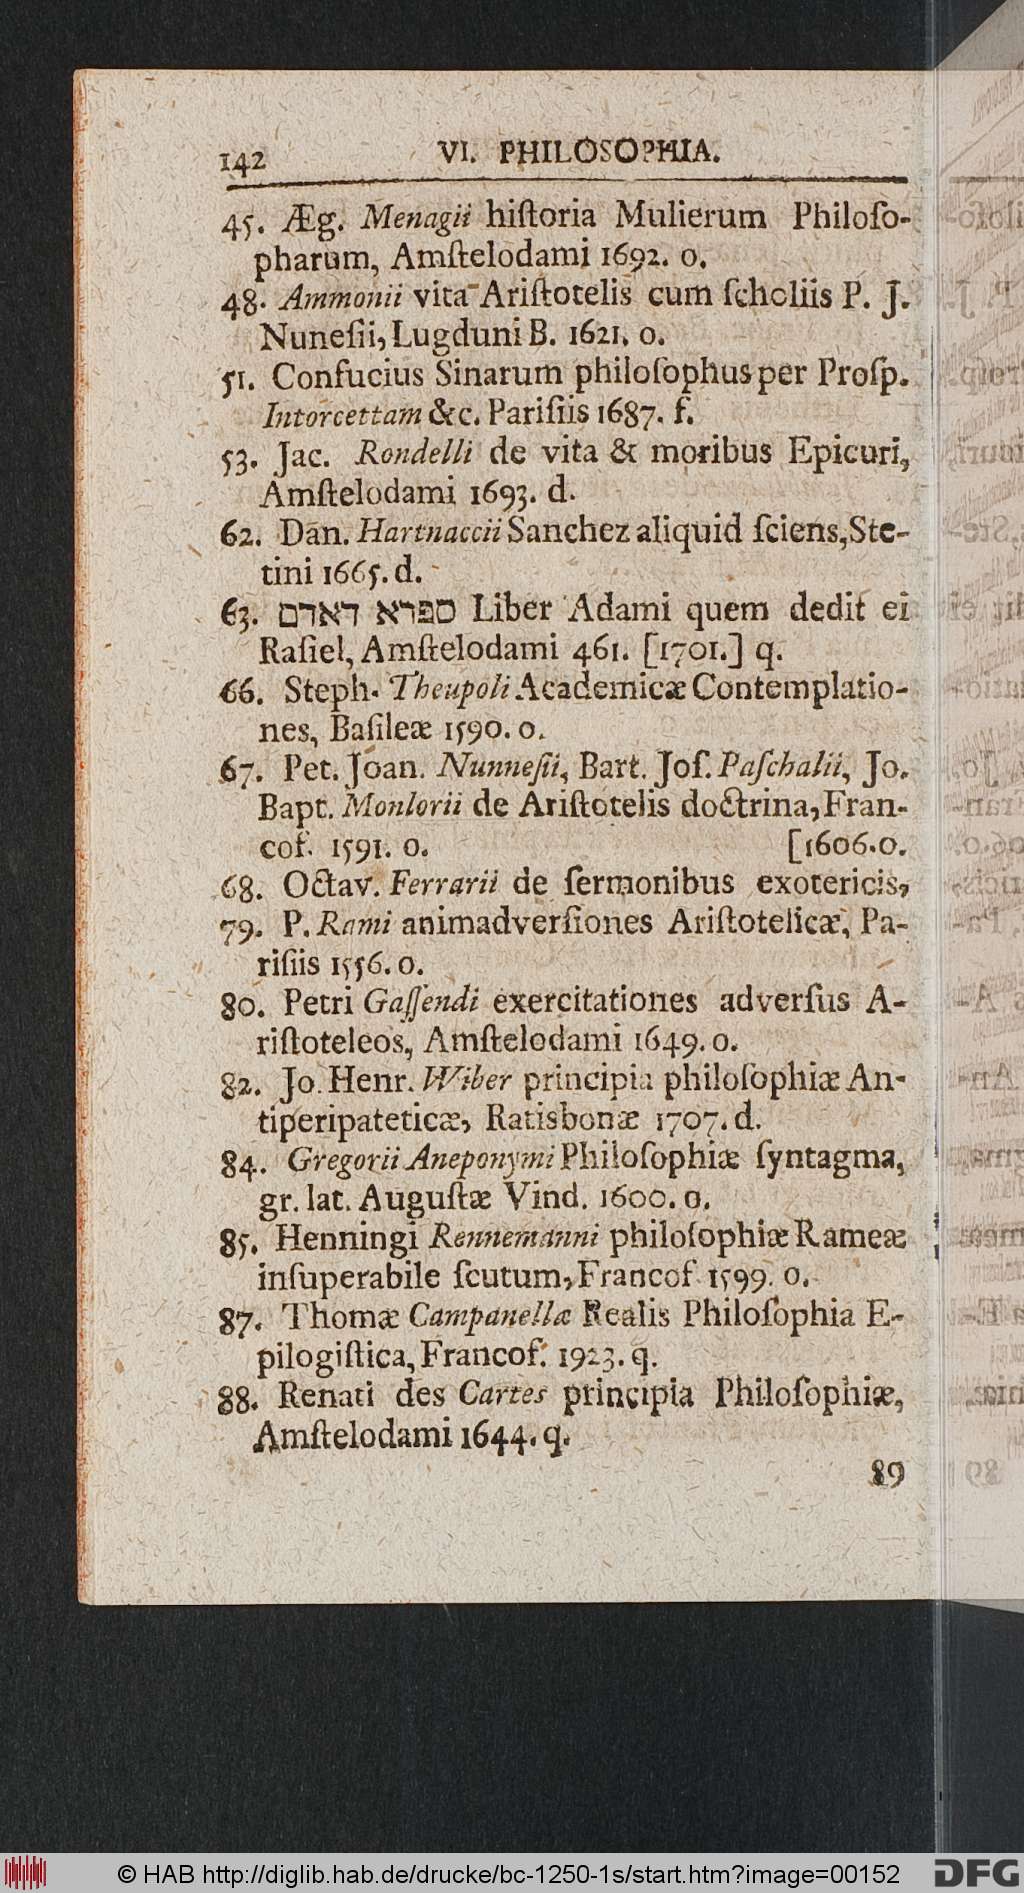 142 VI. PHILOSOPHIA.
45. Æg. Menagii hiſtoria Mulierum Philoſo-
pharum, Amſtelodami 1692. o.
48. Ammonii vita Ariſtotelis cum ſcholiis P. J.
Nuneſii, Lugduni B. 1621. o.
51. Confucius Sinarum philoſophus per Proſp.
Intorcettam &c. Pariſiis 1687. f.
53. Jac. Rondelli de vita & moribus Epicuri,
Amſtelodami 1693. d.
62. Dan. Hartnaccii Sanchez aliquid ſciens, Ste-
tini 1665. d.
63. ספרא דאדם Liber Adami quem dedit ei
Raſiel, Amſtelodami 461. [1701.] q.
66. Steph. Theupoli Academicæ Contemplatio-
nes, Baſileæ 1590. o.
67. Pet. Joan. Nunneſii, Bart. Joſ. Paſchalii, Jo.
Bapt. Monlorii de Ariſtotelis doctrina, Fran-
cof. 1591. o. [1606. o.
68. Octav. Ferrarii de ſermonibus exotericis,
79. P. Rami animadverſiones Ariſtotelicæ, Pa-
riſiis 1556. o.
80. Petri Gaſſendi exercitationes adverſus A-
riſtoteleos, Amſtelodami 1649. o.
82. Jo. Henr. Wiber principia philoſophiæ An-
tiperipateticæ, Ratisbonæ 1707. d.
84. Gregorii Aneponymi Philoſophiæ ſyntagma,
gr. lat. Auguſtæ Vind. 1600. o.
85. Henningi Rennemanni philoſophiæ Rameæ
inſuperabile ſcutum, Francof. 1599. o.
87. Thomæ Campanellæ Realis Philoſophia E-
pilogiſtica, Francof. 1923. q.
88. Renati des Cartes principia Philoſophiæ,
Amſtelodami 1644. q.
89
© HAB http://diglib.hab.de/drucke/bc-1250-1s/start.htm?image=00152 DFG